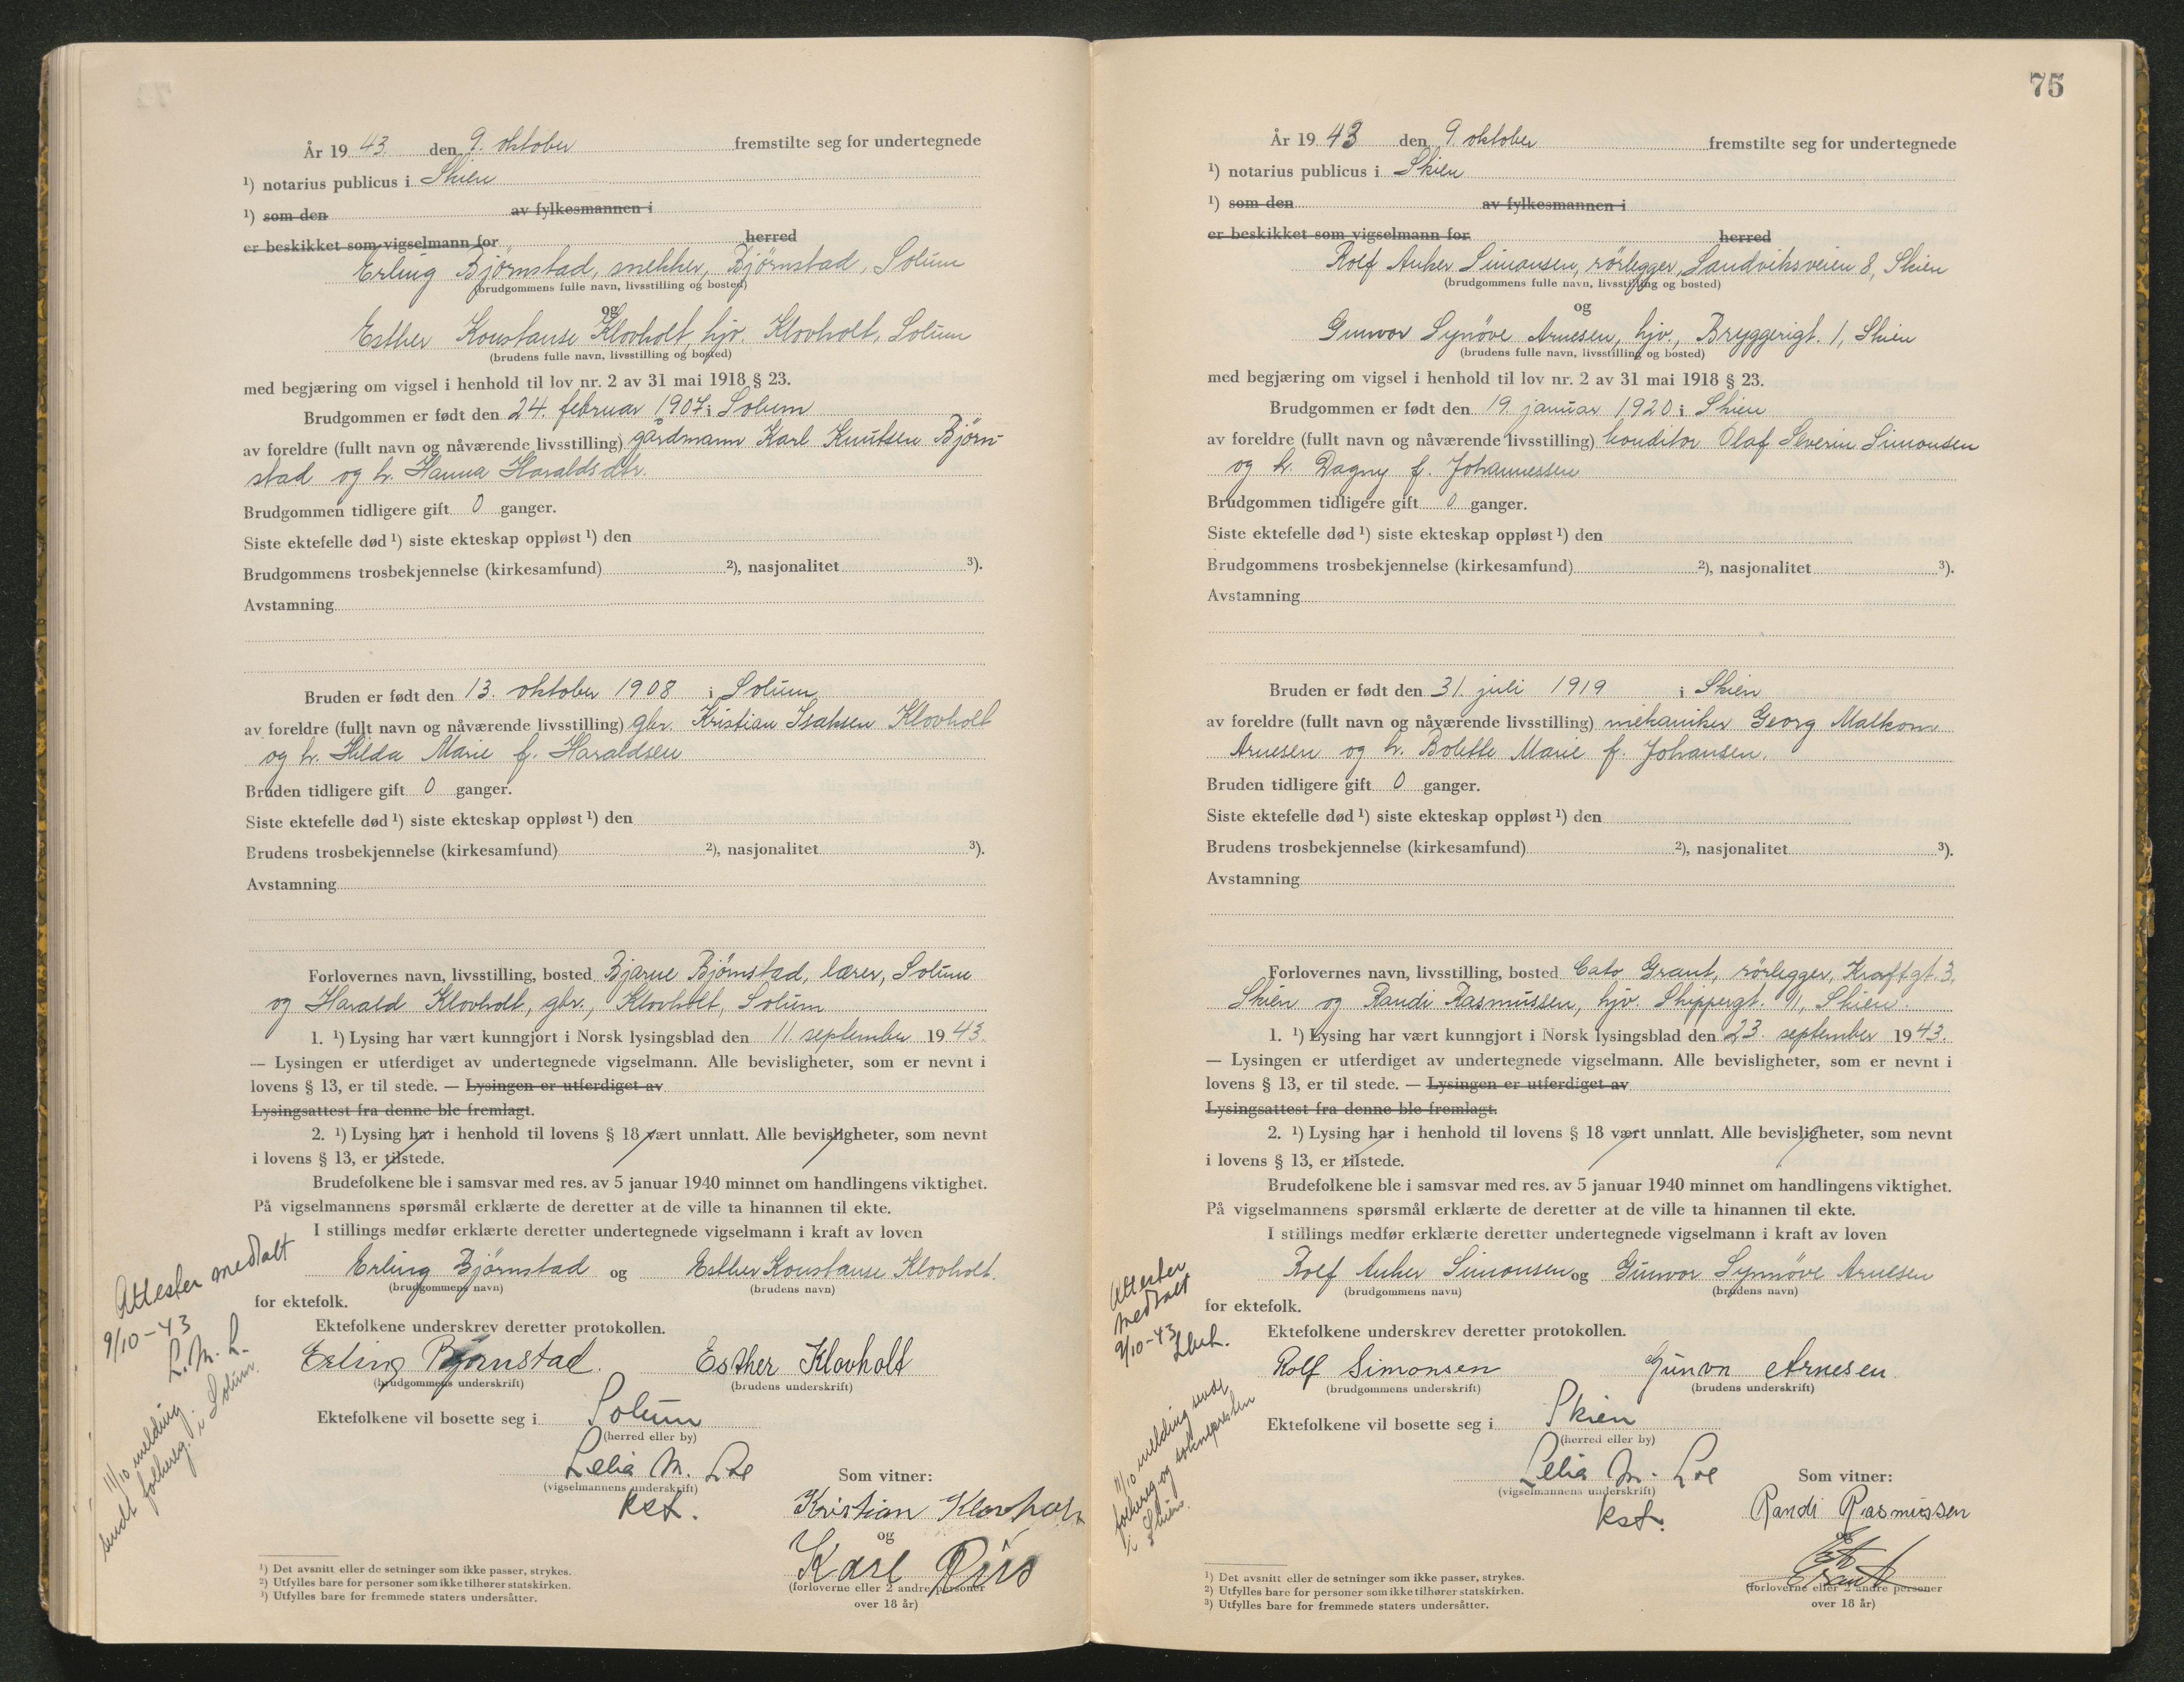 År 1943. den 9. oktober fremstilte seg for undertegnede
¹) notarius publicus i Skien
¹) som den av fylkesmannen i
er beskikket som vigselmann for herred
Erling Bjørnstad, snekker, Bjørnstad, Solum
(brudgommens fulle navn, livsstilling og bosted)
og
Esther Konstanse Klovholt, hjv. Klovholt, Solum
(brudens fulle navn, livsstilling og bosted)
med begjæring om vigsel i henhold til lov nr. 2 av 31 mai 1918 § 23.
Brudgommen er født den 24. februar 1907 i Solum
av foreldre (fullt navn og nåværende livsstilling) gårdmann Karl Knutsen Bjørn-
stad og h. Hanna Haraldsdtr.
Brudgommen tidligere gift 0 ganger.
Siste ektefelle død ¹) siste ekteskap oppløst ¹) den
Brudgommens trosbekjennelse (kirkesamfund) ²), nasjonalitet ³).
Avstamning
Bruden er født den 13. oktober 1908 i Solum
av foreldre (fullt navn og nåværende livsstilling) gbr. Kristian Isaksen Klovholt
og h. Hilda Marie f. Haraldsen
Bruden tidligere gift 0 ganger.
Siste ektefelle død ¹) siste ekteskap oppløst ¹) den
Brudens trosbekjennelse (kirkesamfund) ²), nasjonalitet ³).
Avstamning
Forlovernes navn, livsstilling, bosted Bjarne Bjørnstad, lærer, Solum
og Harald Klovholt, gbr., Klovholt, Solum
1. ¹) Lysing har vært kunngjort i Norsk lysingsblad den 11. september 1943.
— Lysingen er utferdiget av undertegnede vigselmann. Alle bevisligheter, som er nevnt i
lovens § 13, er til stede. — Lysingen er utferdiget av
Lysingsattest fra denne ble fremlagt.
2. ¹) Lysing har i henhold til lovens § 18 vært unnlatt. Alle bevisligheter, som nevnt
i lovens § 13, er tilstede.
Brudefolkene ble i samsvar med res. av 5 januar 1940 minnet om handlingens viktighet.
På vigselmannens spørsmål erklærte de deretter at de ville ta hinannen til ekte.
I stillings medfør erklærte deretter undertegnede vigselmann i kraft av loven
Erling Bjørnstad og Esther Konstanse Klovholt.
(brudgommens navn) (brudens navn)
for ektefolk.
Ektefolkene underskrev deretter protokollen.
Erling Bjørnstad. Esther Klovholt
(brudgommens underskrift) (brudens underskrift)
Ektefolkene vil bosette seg i Solum
(herred eller by)
Lelia M. Loe Som vitner:
(vigselmannens underskrift)
kst. Kristian Klovholt
og
Karl
(forloverne eller 2 andre personer
over 18 år)
¹) Det avsnitt eller de setninger som ikke passer, strykes.
²) Utfylles bare for personer som ikke tilhører statskirken.
³) Utfylles bare for fremmede staters undersåtter.
Attester medtatt
9/10-43
L. M. L.
11/10 melding
sendt folkereg. i Solum.
75
År 1943 den 9 oktober fremstilte seg for undertegnede
¹) notarius publicus i Skien
¹) som den av fylkesmannen i
er beskikket som vigselmann for herred
Rolf Anker Simonsen, rørlegger, Landviksveien 8, Skien
(brudgommens fulle navn, livsstilling og bosted)
og
Gunvor Synøve Arnesen, hjv., Bryggerigt. 1, Skien
(brudens fulle navn, livsstilling og bosted)
med begjæring om vigsel i henhold til lov nr. 2 av 31 mai 1918 § 23.
Brudgommen er født den 19. januar 1920 i Skien
av foreldre (fullt navn og nåværende livsstilling) konditor Olaf Severin Simonsen
og h. Dagny f. Johannessen
Brudgommen tidligere gift 0 ganger.
Siste ektefelle død ¹) siste ekteskap oppløst ¹) den
Brudgommens trosbekjennelse (kirkesamfund) ²), nasjonalitet ³).
Avstamning
Bruden er født den 31. juli 1919 i Skien
av foreldre (fullt navn og nåværende livsstilling) mekaniker Georg Malkom
Arnesen og h. Bolette Marie f. Johansen.
Bruden tidligere gift 0 ganger.
Siste ektefelle død ¹) siste ekteskap oppløst ¹) den
Brudens trosbekjennelse (kirkesamfund) ²), nasjonalitet ³).
Avstamning
Forlovernes navn, livsstilling, bosted Cato Grant, rørlegger, Kraftgt. 3,
Skien og Randi Rasmussen, hjv. Skippergt. 11, Skien.
1. ¹) Lysing har vært kunngjort i Norsk lysingsblad den 23. september 1943.
— Lysingen er utferdiget av undertegnede vigselmann. Alle bevisligheter, som er nevnt i
lovens § 13, er til stede. — Lysingen er utferdiget av
Lysingsattest fra denne ble fremlagt.
2. ¹) Lysing har i henhold til lovens § 18 vært unnlatt. Alle bevisligheter, som nevnt
i lovens § 13, er tilstede.
Brudefolkene ble i samsvar med res. av 5 januar 1940 minnet om handlingens viktighet.
På vigselmannens spørsmål erklærte de deretter at de ville ta hinannen til ekte.
I stillings medfør erklærte deretter undertegnede vigselmann i kraft av loven
Rolf Anker Simonsen og Gunvor Synnøve Arnesen
(brudgommens navn) (brudens navn)
for ektefolk.
Ektefolkene underskrev deretter protokollen.
Rolf Simonsen Gunvor Arnesen
(brudgommens underskrift) (brudens underskrift)
Ektefolkene vil bosette seg i Skien
(herred eller by)
Lelia M. Loe Som vitner:
(vigselmannens underskrift)
kst. Randi Rasmussen
og
Grant
(forloverne eller 2 andre personer
over 18 år)
¹) Det avsnitt eller de setninger som ikke passer, strykes.
²) Utfylles bare for personer som ikke tilhører statskirken.
³) Utfylles bare for fremmede staters undersåtter.
Attester
medtatt
9/10-43
11/10 melding sendt
folkereg. og soknepresten
i Skien.